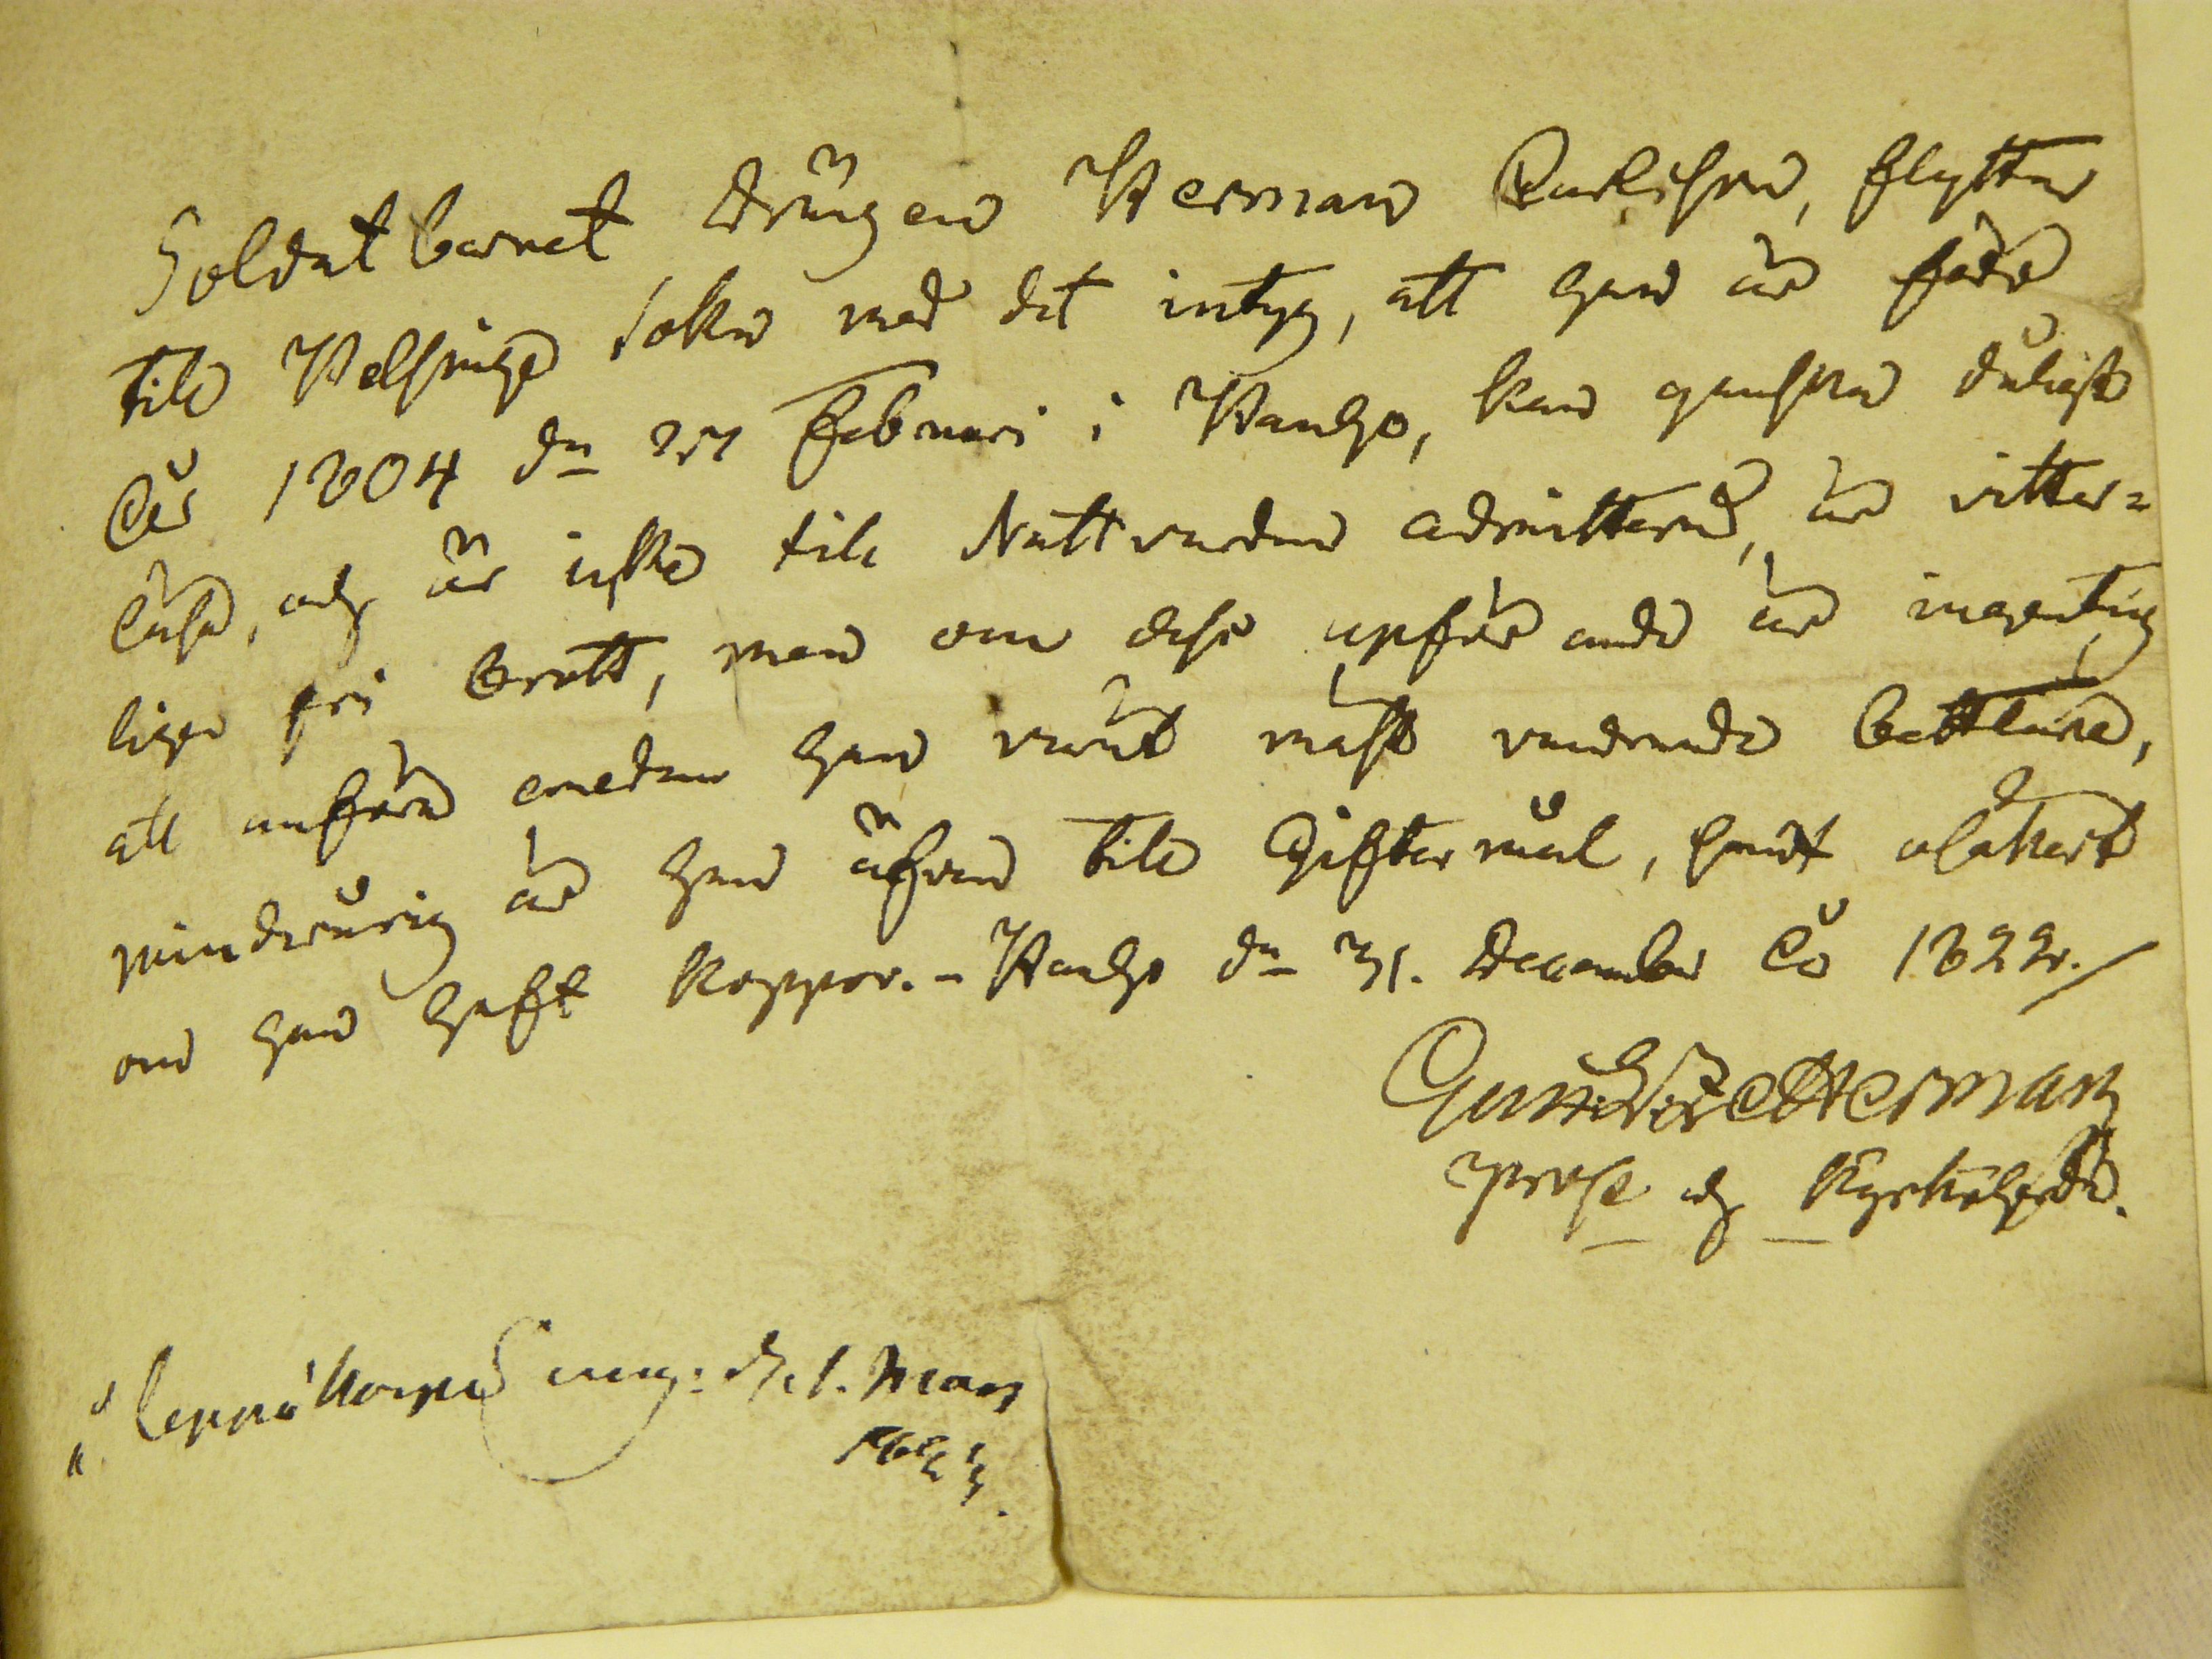 Soldatbarnet Drängen Herman Carlsson, flytter
till Helsinge Sokn med det intyg, att han är född
år 1804 dn 27 Februari i Hauho, kan ganska dåligt
läsa, och är icke till Nattvarden admitterad, är vitter-
ligen fri brott, men om dess uppförande är ingenting
att anföra emedan han varit mäst vandrande bettlare,
mindreårig är han äfven till Giftermål, samt osäkert
om han haft koppor. - Hauho dn 31. December år 1822./
Zetterman
Prost och Kyrkoherde.
Mars